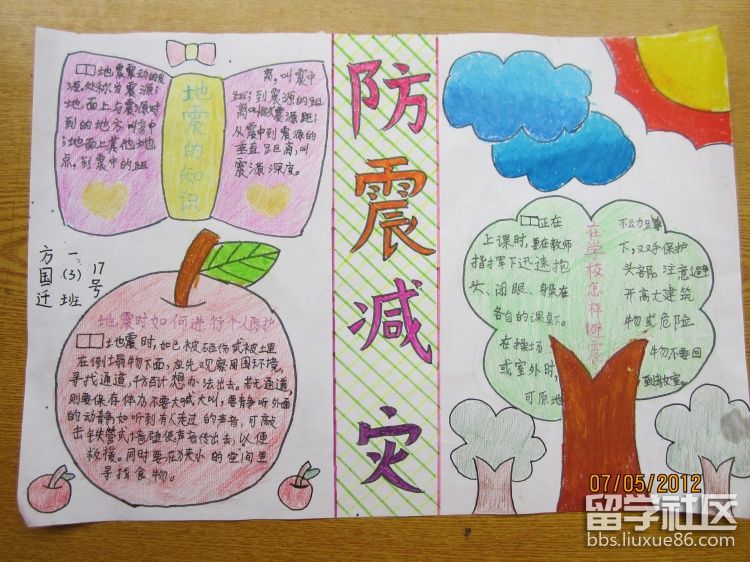 地震的知识
地震震动的发
源处称为震源;
地面上与震源对
到的地方,叫震中
;地面上其他地
点,到震中的距
离,叫震中
距;到震源的距
离叫做震源距;
从震中到震源的
垂直距离,叫
震源深度。
方国迁
一(3)班
17号
地震时如何进行个人防护
地震时,如已被砸伤或被埋
在倒塌物下面,应先观察周围环境,
寻找通道,千方百计想办法出去。若无通道,
则要保存体力不要大喊大叫,要静听外面
的动静,如听到有人走过的声音,可敲
击铁管或墙壁使声音传出去,以便
救援。同时要在狭小的空间里
寻找食物。
防震减灾
在学校怎样避震
正在
上课时,要在教师
指挥下迅速抱
头、闭眼、躲在
各自的课桌下。
在操场
或室外时,
可原地
不动蹲
下,双手保护
头部 注意避
开高大建筑
物或危险
物不要回
到教室。
07/05/2012
留学社区
bbs.liuxue86.com